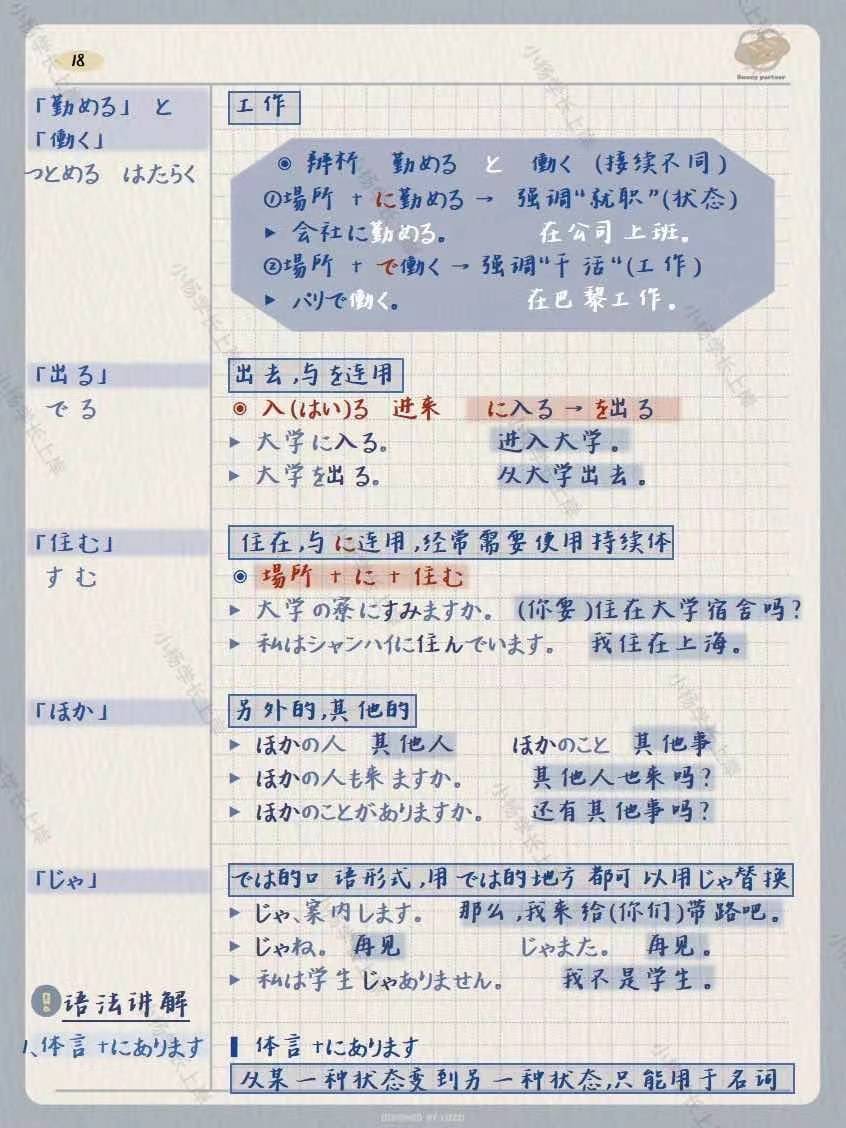 18
Sweety partner
「勤める」 と
「働く」
つとめる はたらく
工作
◉ 辨析 勤める と 働く (接续不同)
①場所 + に勤める → 强调“就职”(状态)
▶ 会社に勤める。 在公司上班。
②場所 + で働く → 强调“干活“(工作)
▶ パリで働く。 在巴黎工作。
「出る」
でる
出去,与を连用
◉ 入(はい)る 进来 に入る → を出る
▶ 大学に入る。 进入大学。
▶ 大学を出る。 从大学出去。
「住む」
すむ
住在,与に连用,经常需要使用持续体
◉ 場所 + に + 住む
▶ 大学の寮にすみますか。 (你要)住在大学宿舍吗?
▶ 私はシャンハイに住んでいます。 我住在上海。
「ほか」
另外的,其他的
▶ ほかの人 其他人 ほかのこと 其他事
▶ ほかの人も来ますか。 其他人也来吗?
▶ ほかのことがありますか。 还有其他事吗?
「じゃ」
では的口语形式,用では的地方都可以用じゃ替换
▶ じゃ、案内します。 那么,我来给(你们)带路吧。
▶ じゃね。 再见 じゃまた。 再见。
▶ 私は学生じゃありません。 我不是学生。
语法讲解
1、体言+にあります
体言+にあります
从某一种状态变到另一种状态,只能用于名词
小杨学长上岸